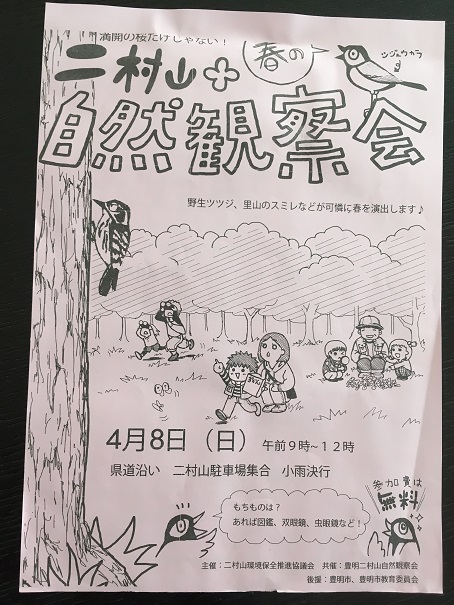 満開の桜だけじゃない！
春の
ツジュウカラ
二村山
自然観察会
野生ツツジ、里山のスミレなどが可憐に春を演出します♪
4月8日（日）　午前９時~１２時
県道沿い　二村山駐車場集合　小雨決行
参加費は
無料
もちものは？
あれば図鑑、双眼鏡、虫眼鏡など！
主催：二村山環境保全推進協議会　共催：豊明二村山自然観察会
後援：豊明市、豊明市教育委員会